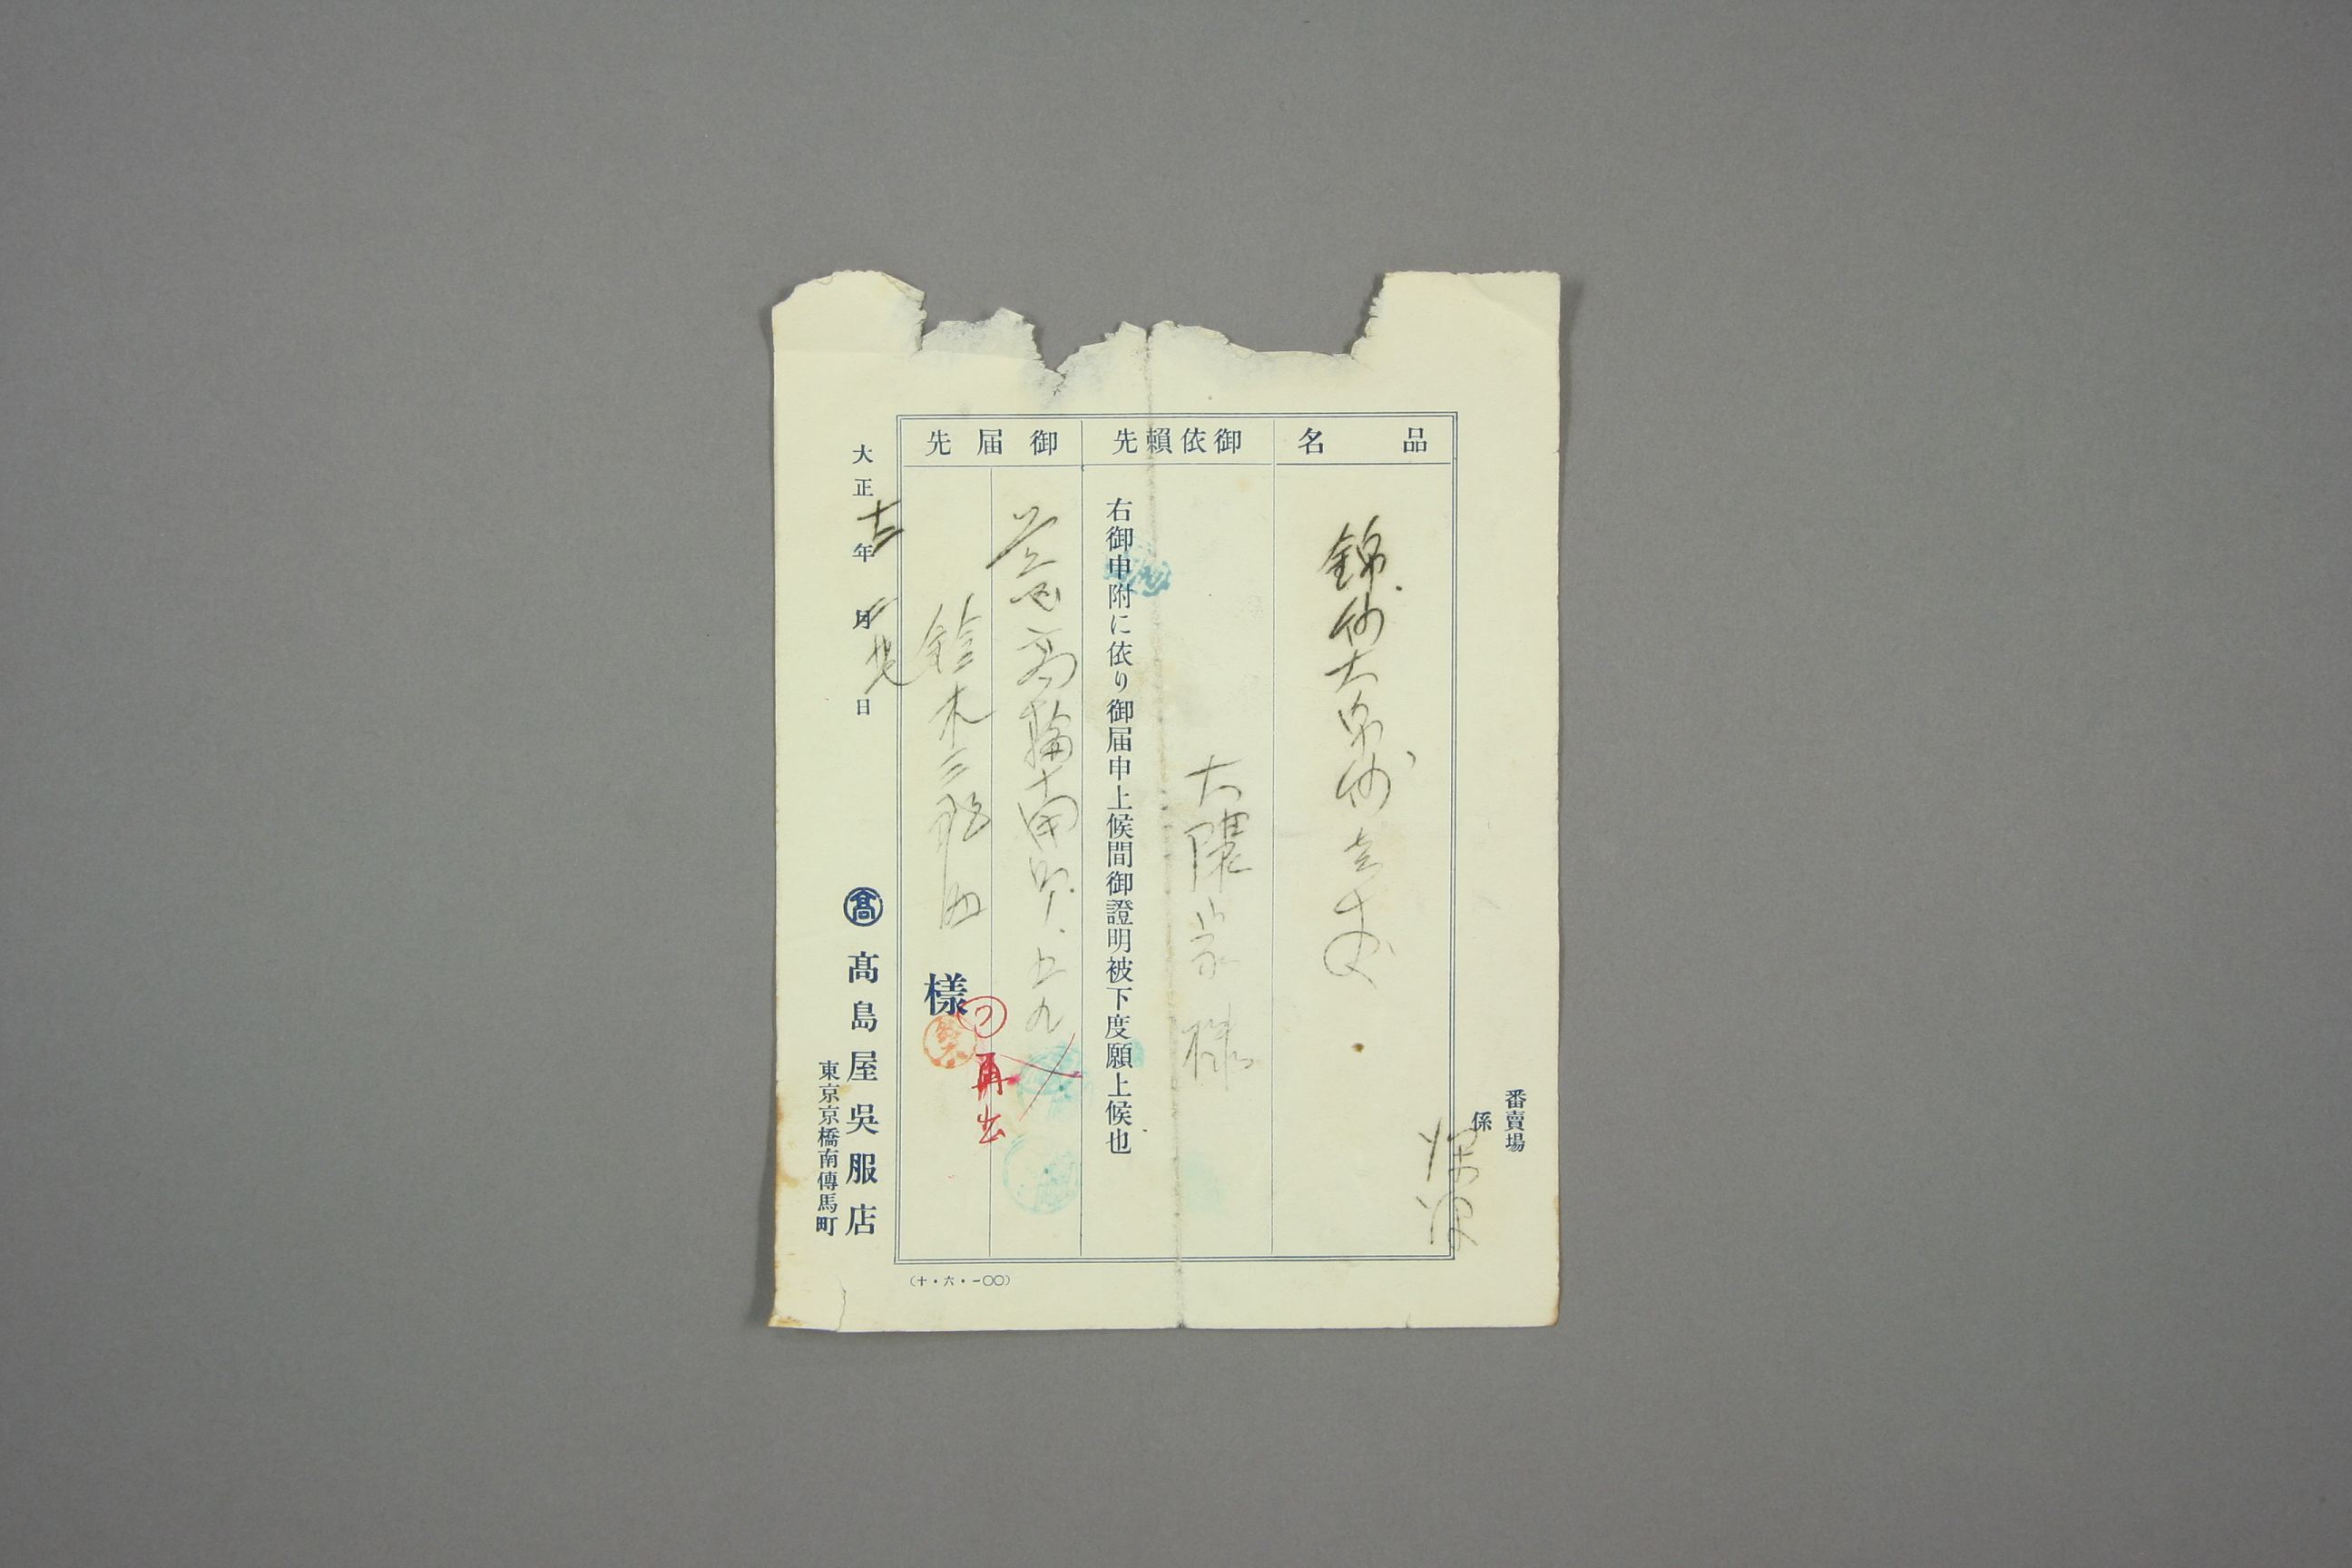 番賣場
係
品名
錦紗大帛紗
御依賴先
大隈家様
右御申附に依り御届申上候間御證明被下度願上候也
御届先
芝區高輪南町五九
鈴木三郎助
樣
再出
大正十二年 月 日
髙島屋吳服店
東京京橋南傳馬町
(十・六・一〇〇)